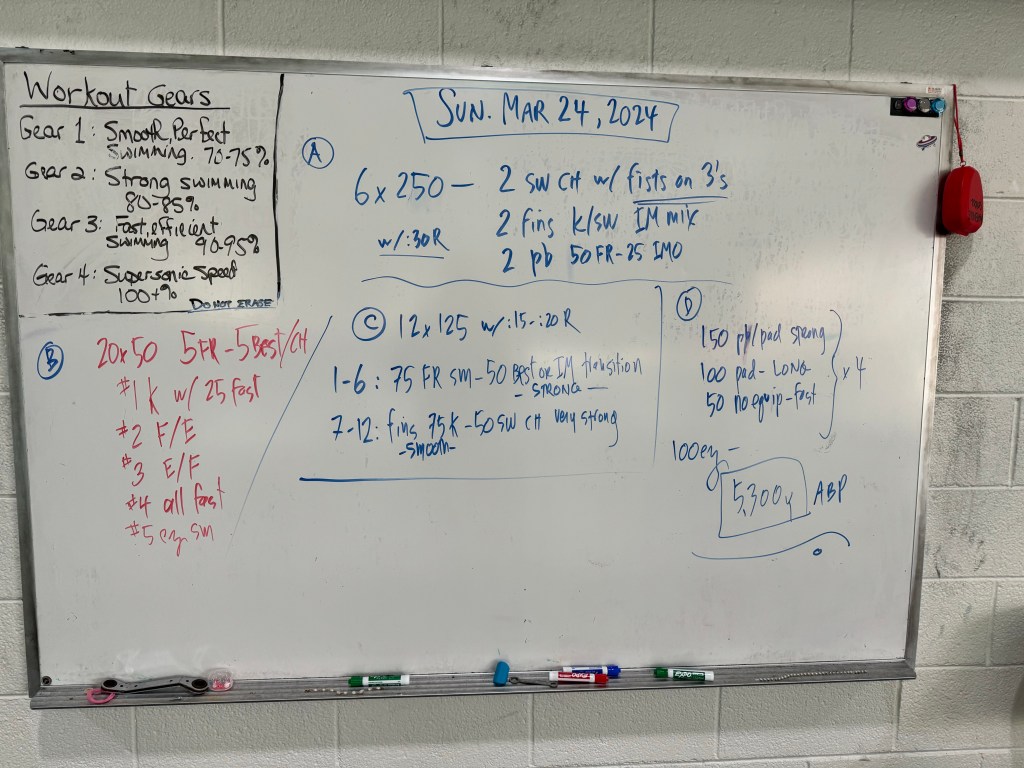 Workout Gears
Gear 1: Smooth, Perfect
Swimming. 70-75%
Gear 2: Strong swimming
80-85%
Gear 3: Fast, efficient
Swimming 90-95%
Gear 4: Supersonic Speed
100+%
DO NOT ERASE
SUN. MAR 24, 2024
A
6x250 — 2 SW CH w/ fists on 3's
2 fins k/sw IM mix
w/:30R
2 pb 50 FR-25 IMO
B
20x50 5FR-5Best/CH
#1 k w/ 25 fast
#2 F/E
#3 E/F
#4 all fast
#5 ez sm
C 12x125 w/:15-:20R
1-6: 75 FR sm-50 Best or IM transition
- STRONG —
7-12: fins 75k-50sw CH very strong
-smooth-
D
150 pb/pad strong
100 pad-LONG x4
50 no equip-fast
100ez —
5,300y ABP
EXPO